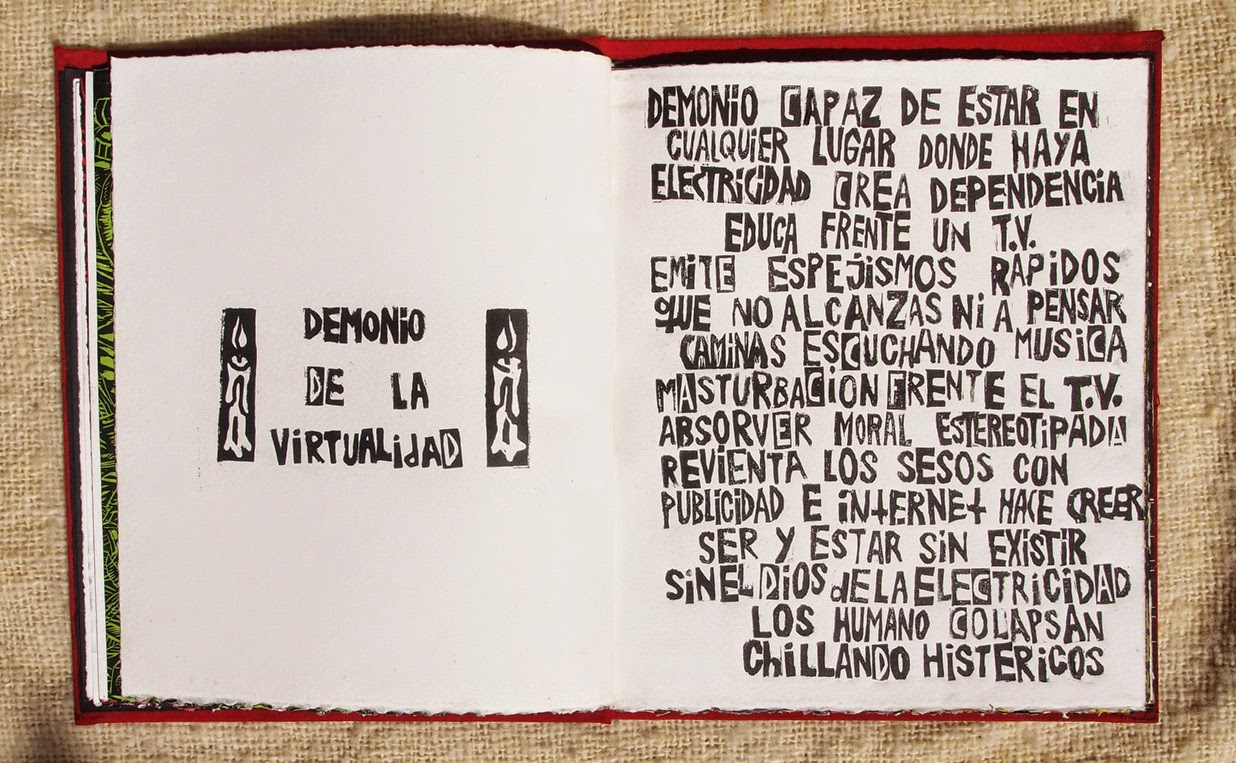 DEMONiO
DE LA
ViRTUALidAD
DEMONiO CAPAZ DE ESTAR EN
CUALQUIER LUGAR DONDE HAYA
ELECTRICIDAD CREA DEPENDENCIA
EDUCA FRENTE UN T.V.
EMITE ESPEjISMOS RAPIDOS
QUE NO ALCANZAS Ni A PENSAR
CAMiNAS ESCUCHANDO MUSICA
MASTURBACION FRENTE EL T.V.
ABSORVER MORAL ESTEREOTIPADA
REVIENTA LOS SESOS CON
PUBLICIDAD E iNtERNEt HACE CREER
SER Y ESTAR SiN EXISTIR
SiN EL DIOS dE LA ELECTRiCiDAD
LOS HUMANO COLAPSAN
CHiLLANDO HISTERICOS